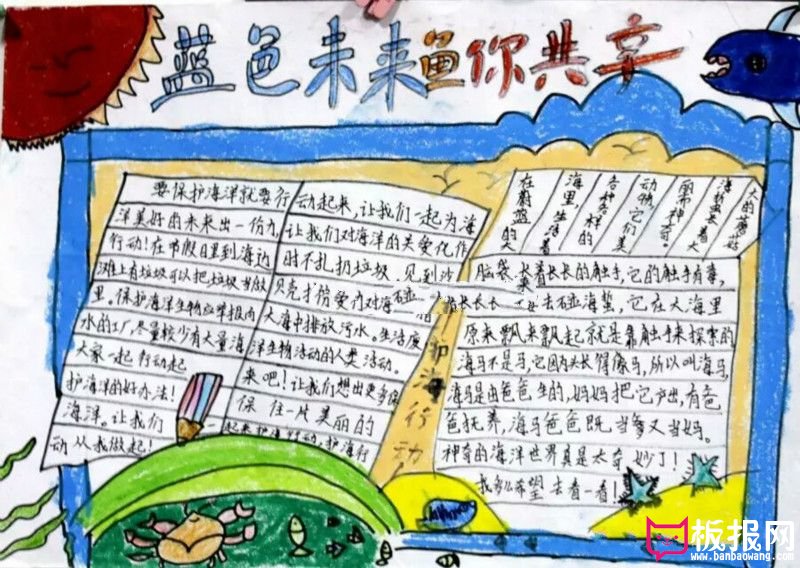 蓝色未来鱼你共享
要保护海洋就要行动起来,让我们一起为海
洋美好的未来出一份力,让我们对海洋的关爱化作
行动!在节假日里到海边时不扎扔垃圾,见到沙
滩上有垃圾可以把垃圾
里。保护海洋生物应举报向大海中排放污水。生活废
水的工厂,尽量较少有大量海洋生物活动的人类活动。
大家一起行动起来吧!让我们想出更多保
护海洋的好办法!保住一片美丽的
海洋。让我们一起来护海行动,护海行
动从我做起!
护海行动
在蔚蓝的大
海里,生活着
各种各样的
动物,它们美
丽而神奇。
海蜇里着大
大的蘑菇
脑袋,长着长长的触手,它的触手有毒,
去碰海蜇,它在大海里
原来飘来飘起就是靠触手来探索的
海马不是马,它因为头长得像马,所以叫海马,
海马是由爸爸生的,妈妈把它产出,有爸
爸抚养,海马爸爸既当爹又当妈。
神奇的海洋世界真是太奇妙了!
我多么希望去看一看!
板报网
www.banbaowang.com